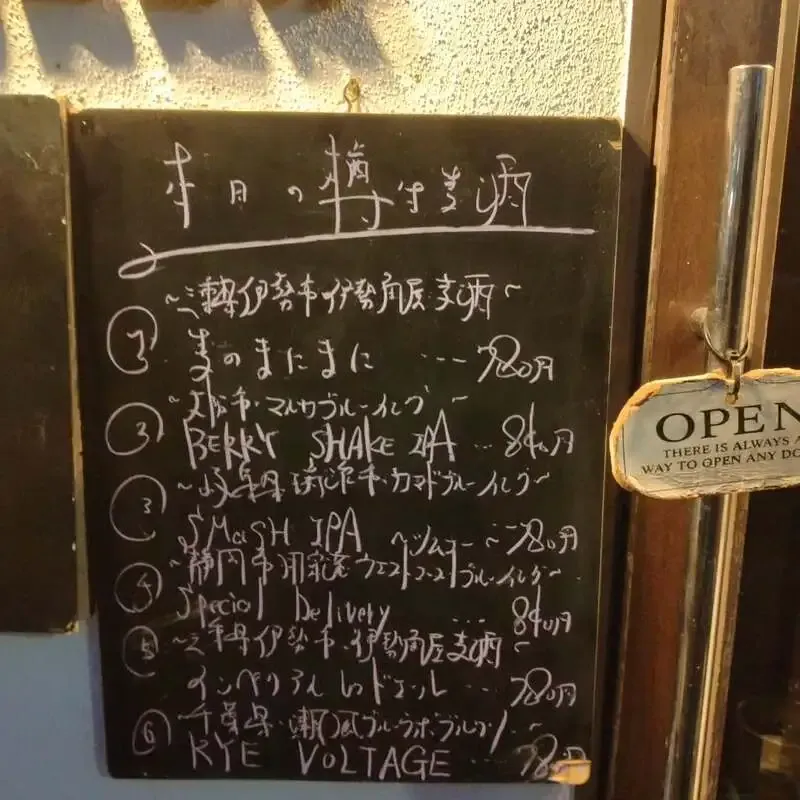 本日の樽付麦酒
~三重県伊勢市伊勢角屋麦酒~
麦のまにまに ... 780円
マルカブルーイング~
③ BERRY SHAKE IPA .. 840円
~岐阜県瑞浪市・カマドブルーイング~
SMaSH IPA ~ツムギ~ 780円
④ ~静岡市用宗港ウエストコーストブルーイング~
Special Delivery ... 840円
⑤ ~三重県伊勢市・伊勢角屋麦酒
インペリアルレッドエール ... 780円
⑥ ~千葉県・潮風ブルーラボ
RYE VOLTAGE ... 78
OPEN
THERE IS ALWAYS A
WAY TO OPEN ANY DO